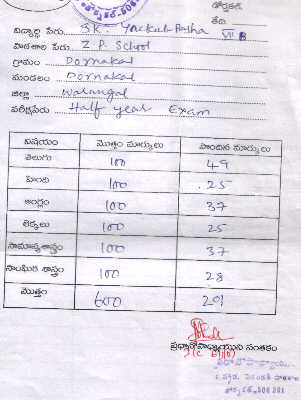 డోర్నకల్.
తేది.
విద్యార్థి పేరు. SK. Yackub Pasha VII B
పాఠశాల పేరు. Z.P. School
గ్రామం Dornakal
మండలం Dornakal
జిల్లా Warangal
పరీక్షపేరు Half year Exam
విషయం మొత్తం మార్కులు పొందిన మార్కులు
తెలుగు 100 49
హింది 100 25
ఆంగ్లం 100 37
లెక్కలు 100 25
సామాన్యశాస్త్రం 100 37
సాంఘిక శాస్త్రం 100 28
మొత్తం 600 201
ప్రధానోపాధ్యాయుని సంతకం
ప్రధానోపాధ్యాయు